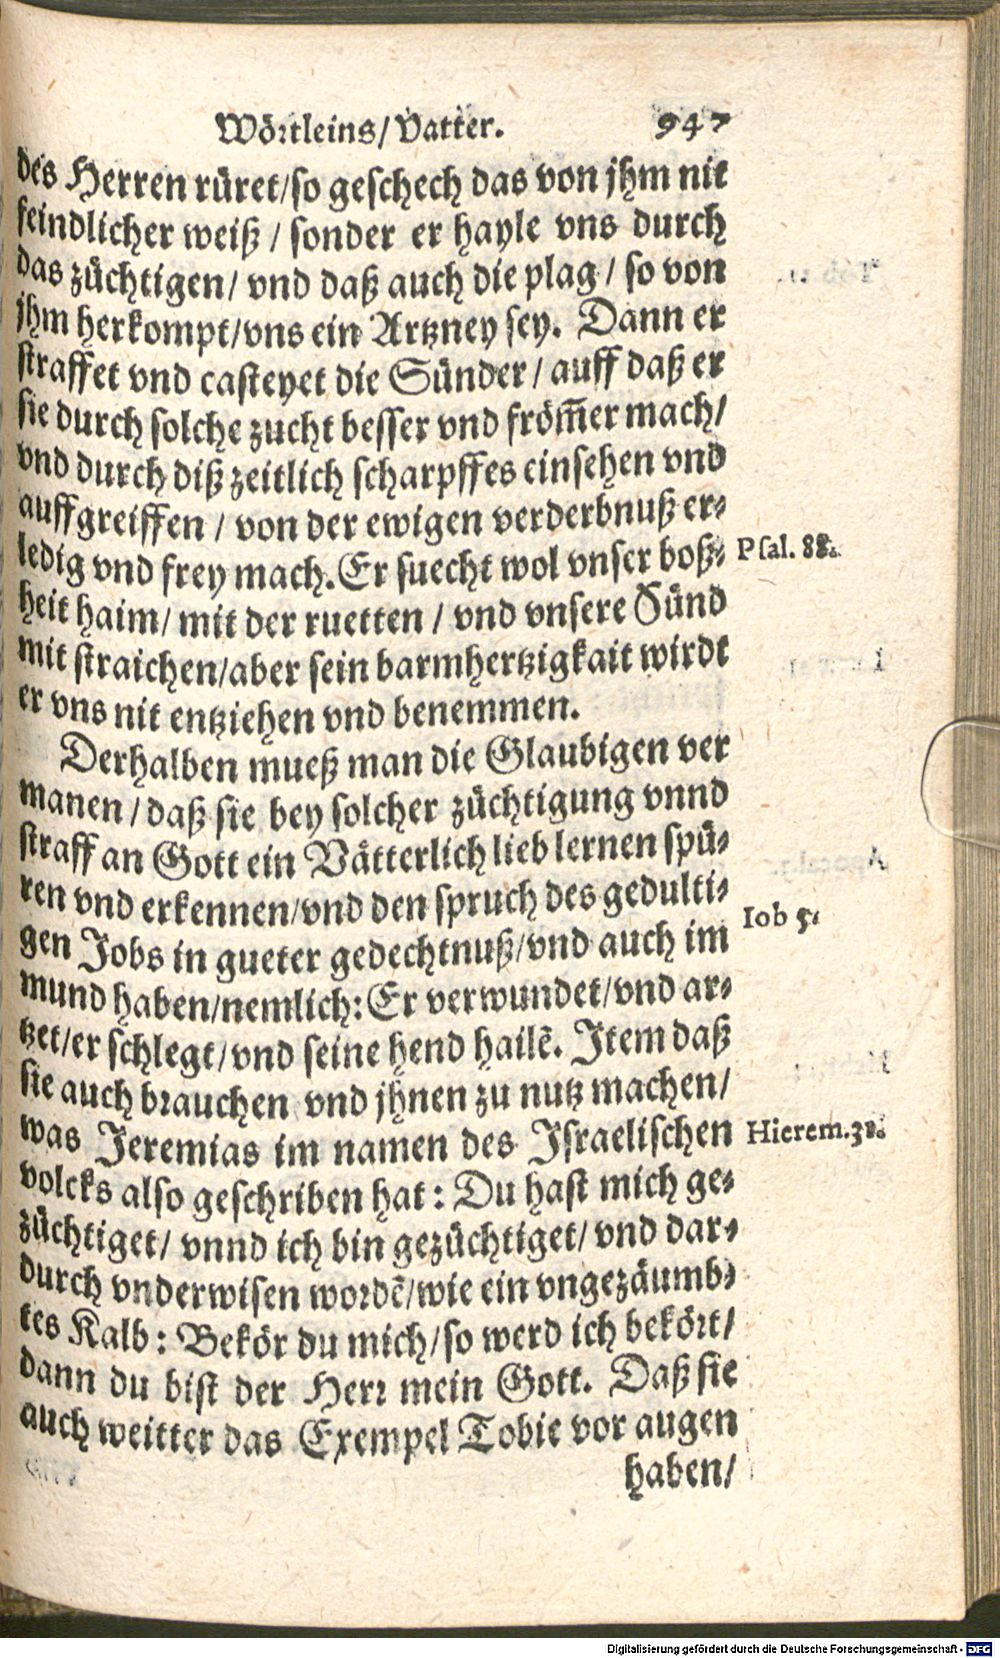 Wörtleins/Vatter. 947
des Herren rüret/so geschech das von jhm nit
feindlicher weiß / sonder er hayle vns durch
das züchtigen/ vnd daß auch die plag / so von
jhm herkompt/vns ein Artzney sey. Dann er
straffet vnd casteyet die Sünder / auff daß er
sie durch solche zucht besser vnd from̃er mach/
vnd durch diß zeitlich scharpffes einsehen vnd
auffgreiffen / von der ewigen verderbnuß er-
ledig vnd frey mach. Er suecht wol vnser boß-
Psal. 88.
heit haim/ mit der ruetten / vnd vnsere Sünd
mit straichen/aber sein barmhertzigkait wirdt
er vns nit entziehen vnd benemmen.
Derhalben mueß man die Glaubigen ver
manen / daß sie bey solcher züchtigung vnnd
straff an Gott ein Vätterlich lieb lernen spü-
ren vnd erkennen/vnd den spruch des gedulti-
Iob 5.
gen Jobs in gueter gedechtnuß/vnd auch im
mund haben/nemlich: Er verwundet/vnd ar-
tzet/er schlegt/vnd seine hend hailẽ. Item daß
sie auch brauchen vnd jhnen zu nutz machen/
was Jeremias im namen des Israelischen
Hierem.31.
volcks also geschriben hat: Du hast mich ge-
züchtiget/ vnnd ich bin gezüchtiget/ vnd dar-
durch vnderwisen wordẽ/wie ein vngezäumb-
tes Kalb: Bekör du mich/so werd ich bekört/
dann du bist der Herr mein Gott. Daß sie
auch weitter das Exempel Tobie vor augen
haben/
Digitalisierung gefördert durch die Deutsche Forschungsgemeinschaft - DFG